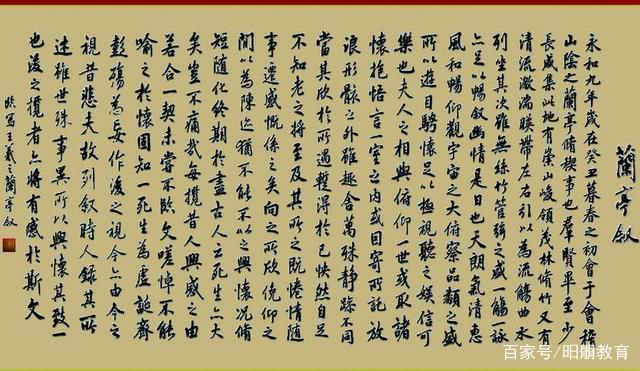 蘭亭敘
永和九年歲在癸丑暮春之初會于會稽
山陰之蘭亭脩稧事也羣賢畢至少
長咸集此地有崇山峻領茂林脩竹又有
清流激湍暎帶左右引以為流觴曲水
列坐其次雖無絲竹管弦之盛一觴一詠
亦足以暢敘幽情是日也天朗氣清惠
風和暢仰觀宇宙之大俯察品類之盛
所以遊目騁懷足以極視聽之娛信可
樂也夫人之相與俯仰一世或取諸
懷抱悟言一室之內或因寄所託放
浪形骸之外雖趣舍萬殊靜躁不同
當其欣於所遇暫得於己怏然自足
不知老之將至及其所之既惓情隨
事遷感慨係之矣向之所欣俛仰之
閒以為陳迹猶不能不以之興懷況脩
短隨化終期於盡古人云死生亦大
矣豈不痛哉每攬昔人興感之由
若合一契未嘗不臨文嗟悼不能
喻之於懷固知一死生為虛誕齊
彭殤為妄作後之視今亦由今之
視昔悲夫故列敘時人錄其所
述雖世殊事異所以興懷其致一
也後之攬者亦將有感於斯文
臨寫王羲之蘭亭敘
百家号/教育